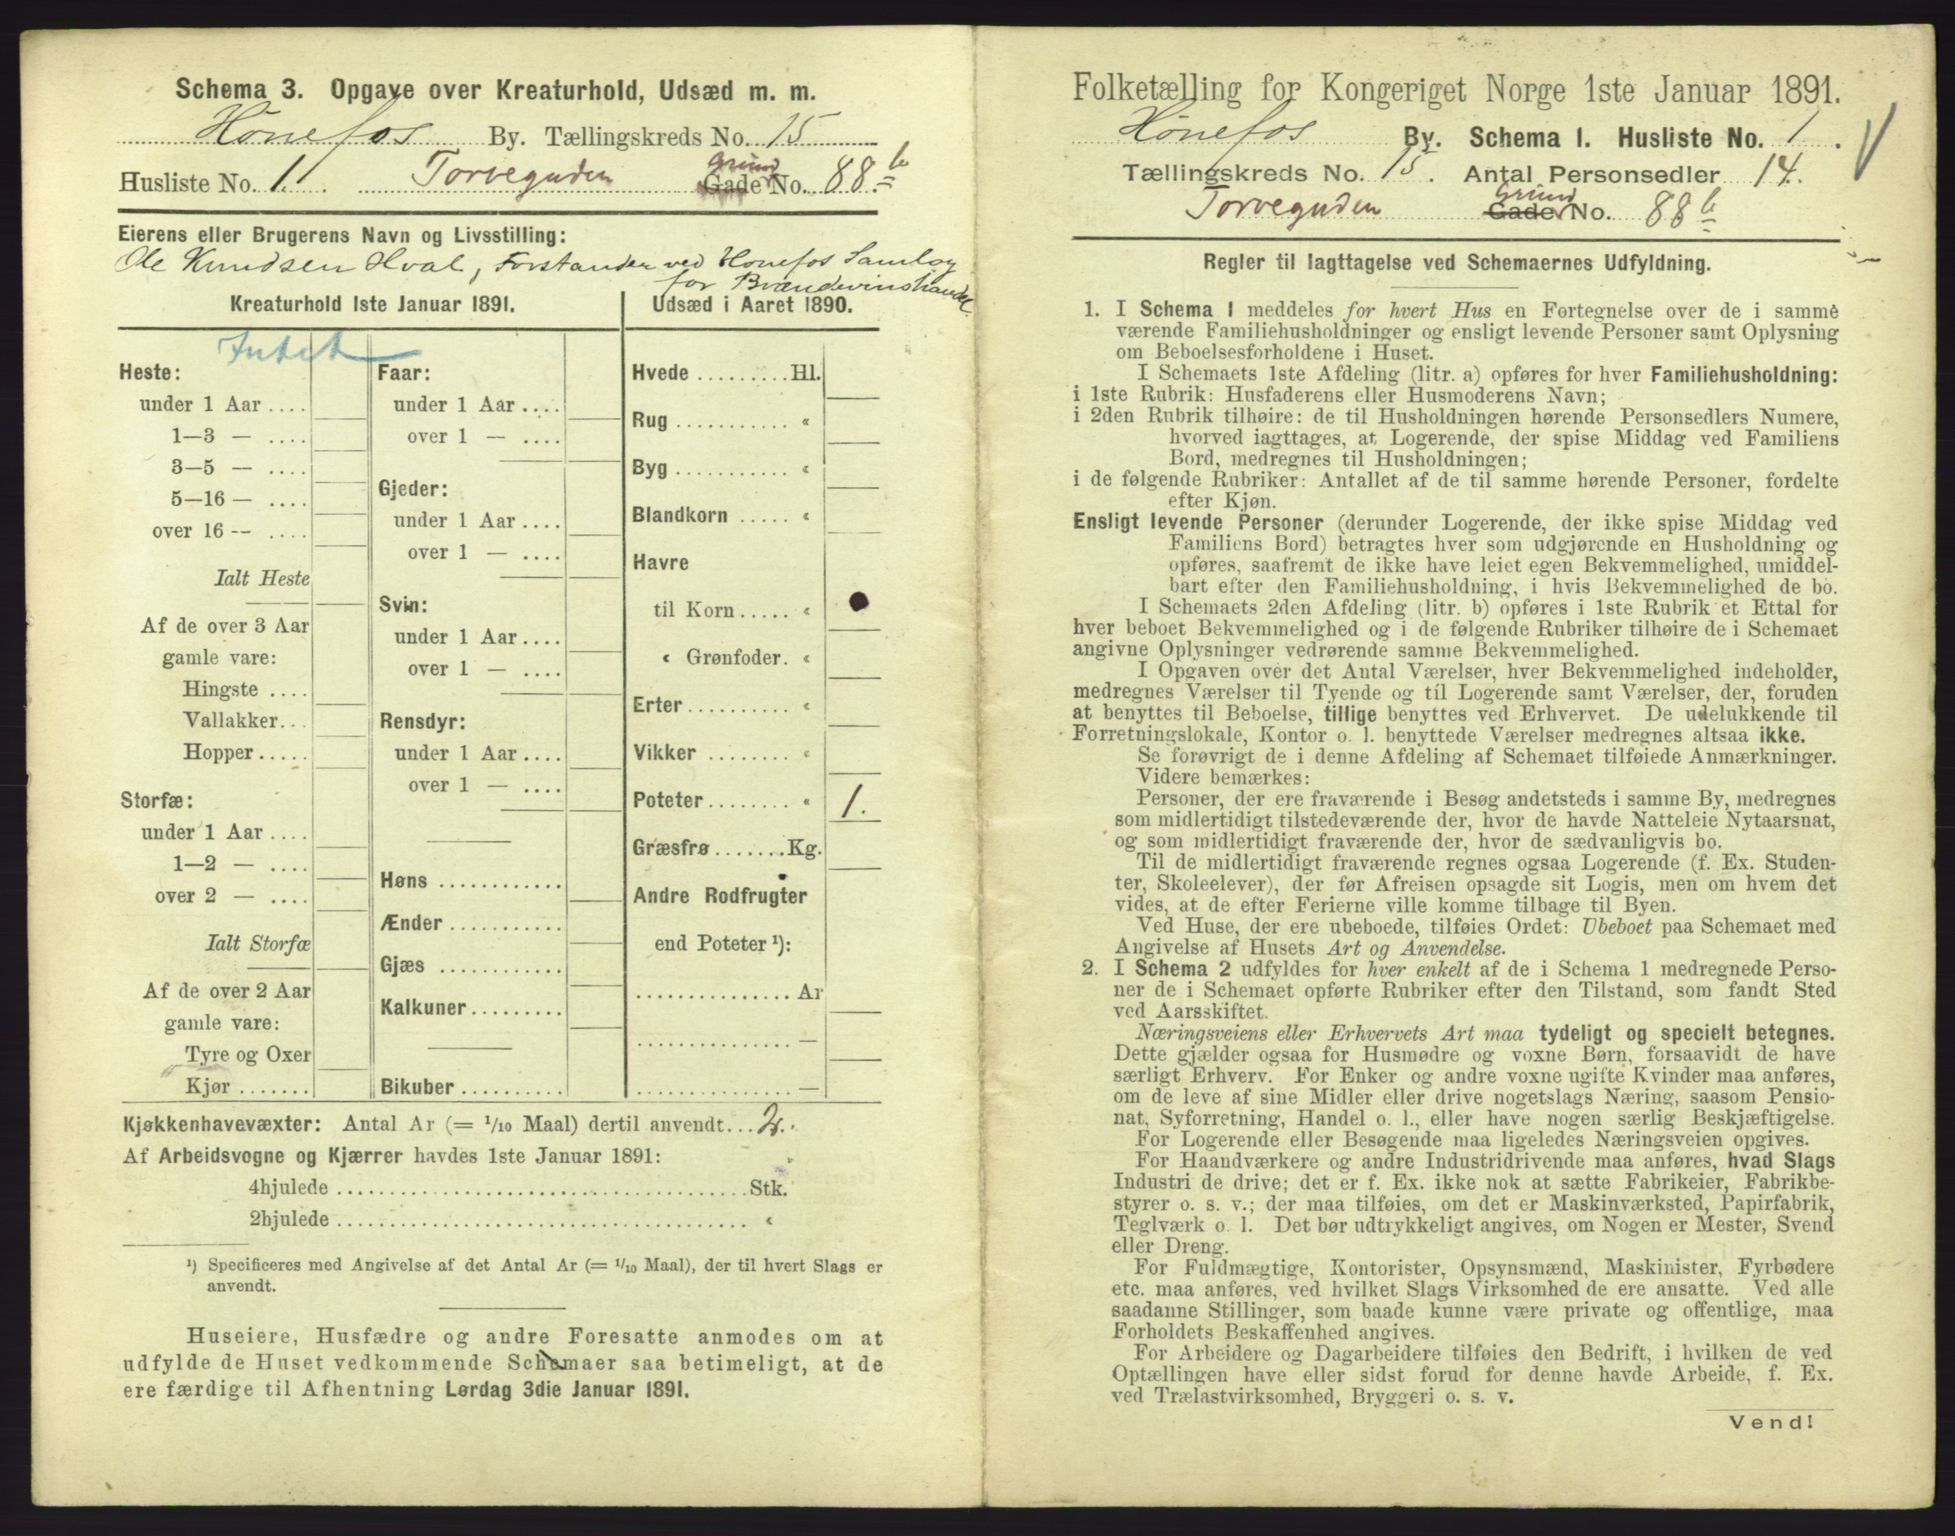 Schema 3. Opgave over Kreaturhold, Udsæd m. m.
Hønefos By. Tællingskreds No. 15
Husliste No. 1. Torveguden Grund Gade No. 88 b
Eierens eller Brugerens Navn og Livsstilling:
Ole Knudsen Hval, Forstander ved Hønefos Samlag
for Brændevinshandel.
Kreaturhold 1ste Januar 1891.
Intet
Heste:
under 1 Aar ....
1—3 — ....
3—5 — ....
5—16 — ....
over 16 — ....
Ialt Heste
Af de over 3 Aar
gamle vare:
Hingste ....
Vallakker...
Hopper .....
Storfæ:
under 1 Aar ....
1—2 — ....
over 2 — ....
Ialt Storfæ
Af de over 2 Aar
gamle vare:
Tyre og Oxer
Kjør .......
Faar:
under 1 Aar ....
over 1 — ....
Gjeder:
under 1 Aar ....
over 1 — ....
Svin:
under 1 Aar ....
over 1 — ....
Rensdyr:
under 1 Aar ....
over 1 — ....
Høns ............
Ænder ...........
Gjæs ............
Kalkuner .........
Bikuber ..........
Udsæd i Aaret 1890.
Hvede ......... Hl.
Rug ........... «
Byg ........... «
Blandkorn ..... «
Havre
til Korn ..... «
« Grønfoder. «
Erter .......... «
Vikker ........ «
Poteter ........ « 1.
Græsfrø ....... Kg.
Andre Rodfrugter
end Poteter ¹):
............... Ar
............... —
............... —
Kjøkkenhavevæxter: Antal Ar (= 1/10 Maal) dertil anvendt... 2.
Af Arbeidsvogne og Kjærrer havdes 1ste Januar 1891:
4hjulede ........................................ Stk.
2hjulede ........................................ «
¹) Specificeres med Angivelse af det Antal Ar (= 1/10 Maal), der til hvert Slags er
anvendt.
Huseiere, Husfædre og andre Foresatte anmodes om at
udfylde de Huset vedkommende Schemaer saa betimeligt, at de
ere færdige til Afhentning Lørdag 3die Januar 1891.
Folketælling for Kongeriget Norge 1ste Januar 1891.
Hønefos By. Schema 1. Husliste No. 1.
Tællingskreds No. 15. Antal Personsedler 14.
Torveguden Grund Gade No. 88 b
Regler til Iagttagelse ved Schemaernes Udfyldning.
1. I Schema 1 meddeles for hvert Hus en Fortegnelse over de i samme
værende Familiehusholdninger og ensligt levende Personer samt Oplysning
om Beboelsesforholdene i Huset.
I Schemaets 1ste Afdeling (litr. a) opføres for hver Familiehusholdning:
i 1ste Rubrik: Husfaderens eller Husmoderens Navn;
i 2den Rubrik tilhøire: de til Husholdningen hørende Personsedlers Numere,
hvorved iagttages, at Logerende, der spise Middag ved Familiens
Bord, medregnes til Husholdningen;
i de følgende Rubriker: Antallet af de til samme hørende Personer, fordelte
efter Kjøn.
Ensligt levende Personer (derunder Logerende, der ikke spise Middag ved
Familiens Bord) betragtes hver som udgjørende en Husholdning og
opføres, saafremt de ikke have leiet egen Bekvemmelighed, umiddel-
bart efter den Familiehusholdning, i hvis Bekvemmelighed de bo.
I Schemaets 2den Afdeling (litr. b) opføres i 1ste Rubrik et Ettal for
hver beboet Bekvemmelighed og i de følgende Rubriker tilhøire de i Schemaet
angivne Oplysninger vedrørende samme Bekvemmelighed.
I Opgaven over det Antal Værelser, hver Bekvemmelighed indeholder,
medregnes Værelser til Tyende og til Logerende samt Værelser, der, foruden
at benyttes til Beboelse, tillige benyttes ved Erhvervet. De udelukkende til
Forretningslokale, Kontor o. l. benyttede Værelser medregnes altsaa ikke.
Se forøvrigt de i denne Afdeling af Schemaet tilføiede Anmærkninger.
Videre bemærkes:
Personer, der ere fraværende i Besøg andetsteds i samme By, medregnes
som midlertidigt tilstedeværende der, hvor de havde Natteleie Nytaarsnat,
og som midlertidigt fraværende der, hvor de sædvanligvis bo.
Til de midlertidigt fraværende regnes ogsaa Logerende (f. Ex. Studen-
ter, Skoleelever), der før Afreisen opsagde sit Logis, men om hvem det
vides, at de efter Ferierne ville komme tilbage til Byen.
Ved Huse, der ere ubeboede, tilføies Ordet: Ubeboet paa Schemaet med
Angivelse af Husets Art og Anvendelse.
2. I Schema 2 udfyldes for hver enkelt af de i Schema 1 medregnede Perso-
ner de i Schemaet opførte Rubriker efter den Tilstand, som fandt Sted
ved Aarsskiftet.
Næringsveiens eller Erhvervets Art maa tydeligt og specielt betegnes.
Dette gjælder ogsaa for Husmødre og voxne Børn, forsaavidt de have
særligt Erhverv. For Enker og andre voxne ugifte Kvinder maa anføres,
om de leve af sine Midler eller drive nogetslags Næring, saasom Pensio-
nat, Syforretning, Handel o. l., eller have nogen særlig Beskjæftigelse.
For Logerende eller Besøgende maa ligeledes Næringsveien opgives.
For Haandværkere og andre Industridrivende maa anføres, hvad Slags
Industri de drive; det er f. Ex. ikke nok at sætte Fabrikeier, Fabrikbe-
styrer o. s. v.; der maa tilføies, om det er Maskinværksted, Papirfabrik,
Teglværk o. l. Det bør udtrykkeligt angives, om Nogen er Mester, Svend
eller Dreng.
For Fuldmægtige, Kontorister, Opsynsmænd, Maskinister, Fyrbødere
etc. maa anføres, ved hvilket Slags Virksomhed de ere ansatte. Ved alle
saadanne Stillinger, som baade kunne være private og offentlige, maa
Forholdets Beskaffenhed angives.
For Arbeidere og Dagarbeidere tilføies den Bedrift, i hvilken de ved
Optællingen have eller sidst forud for denne havde Arbeide, f. Ex.
ved Trælastvirksomhed, Bryggeri o. s. v.
Vend!